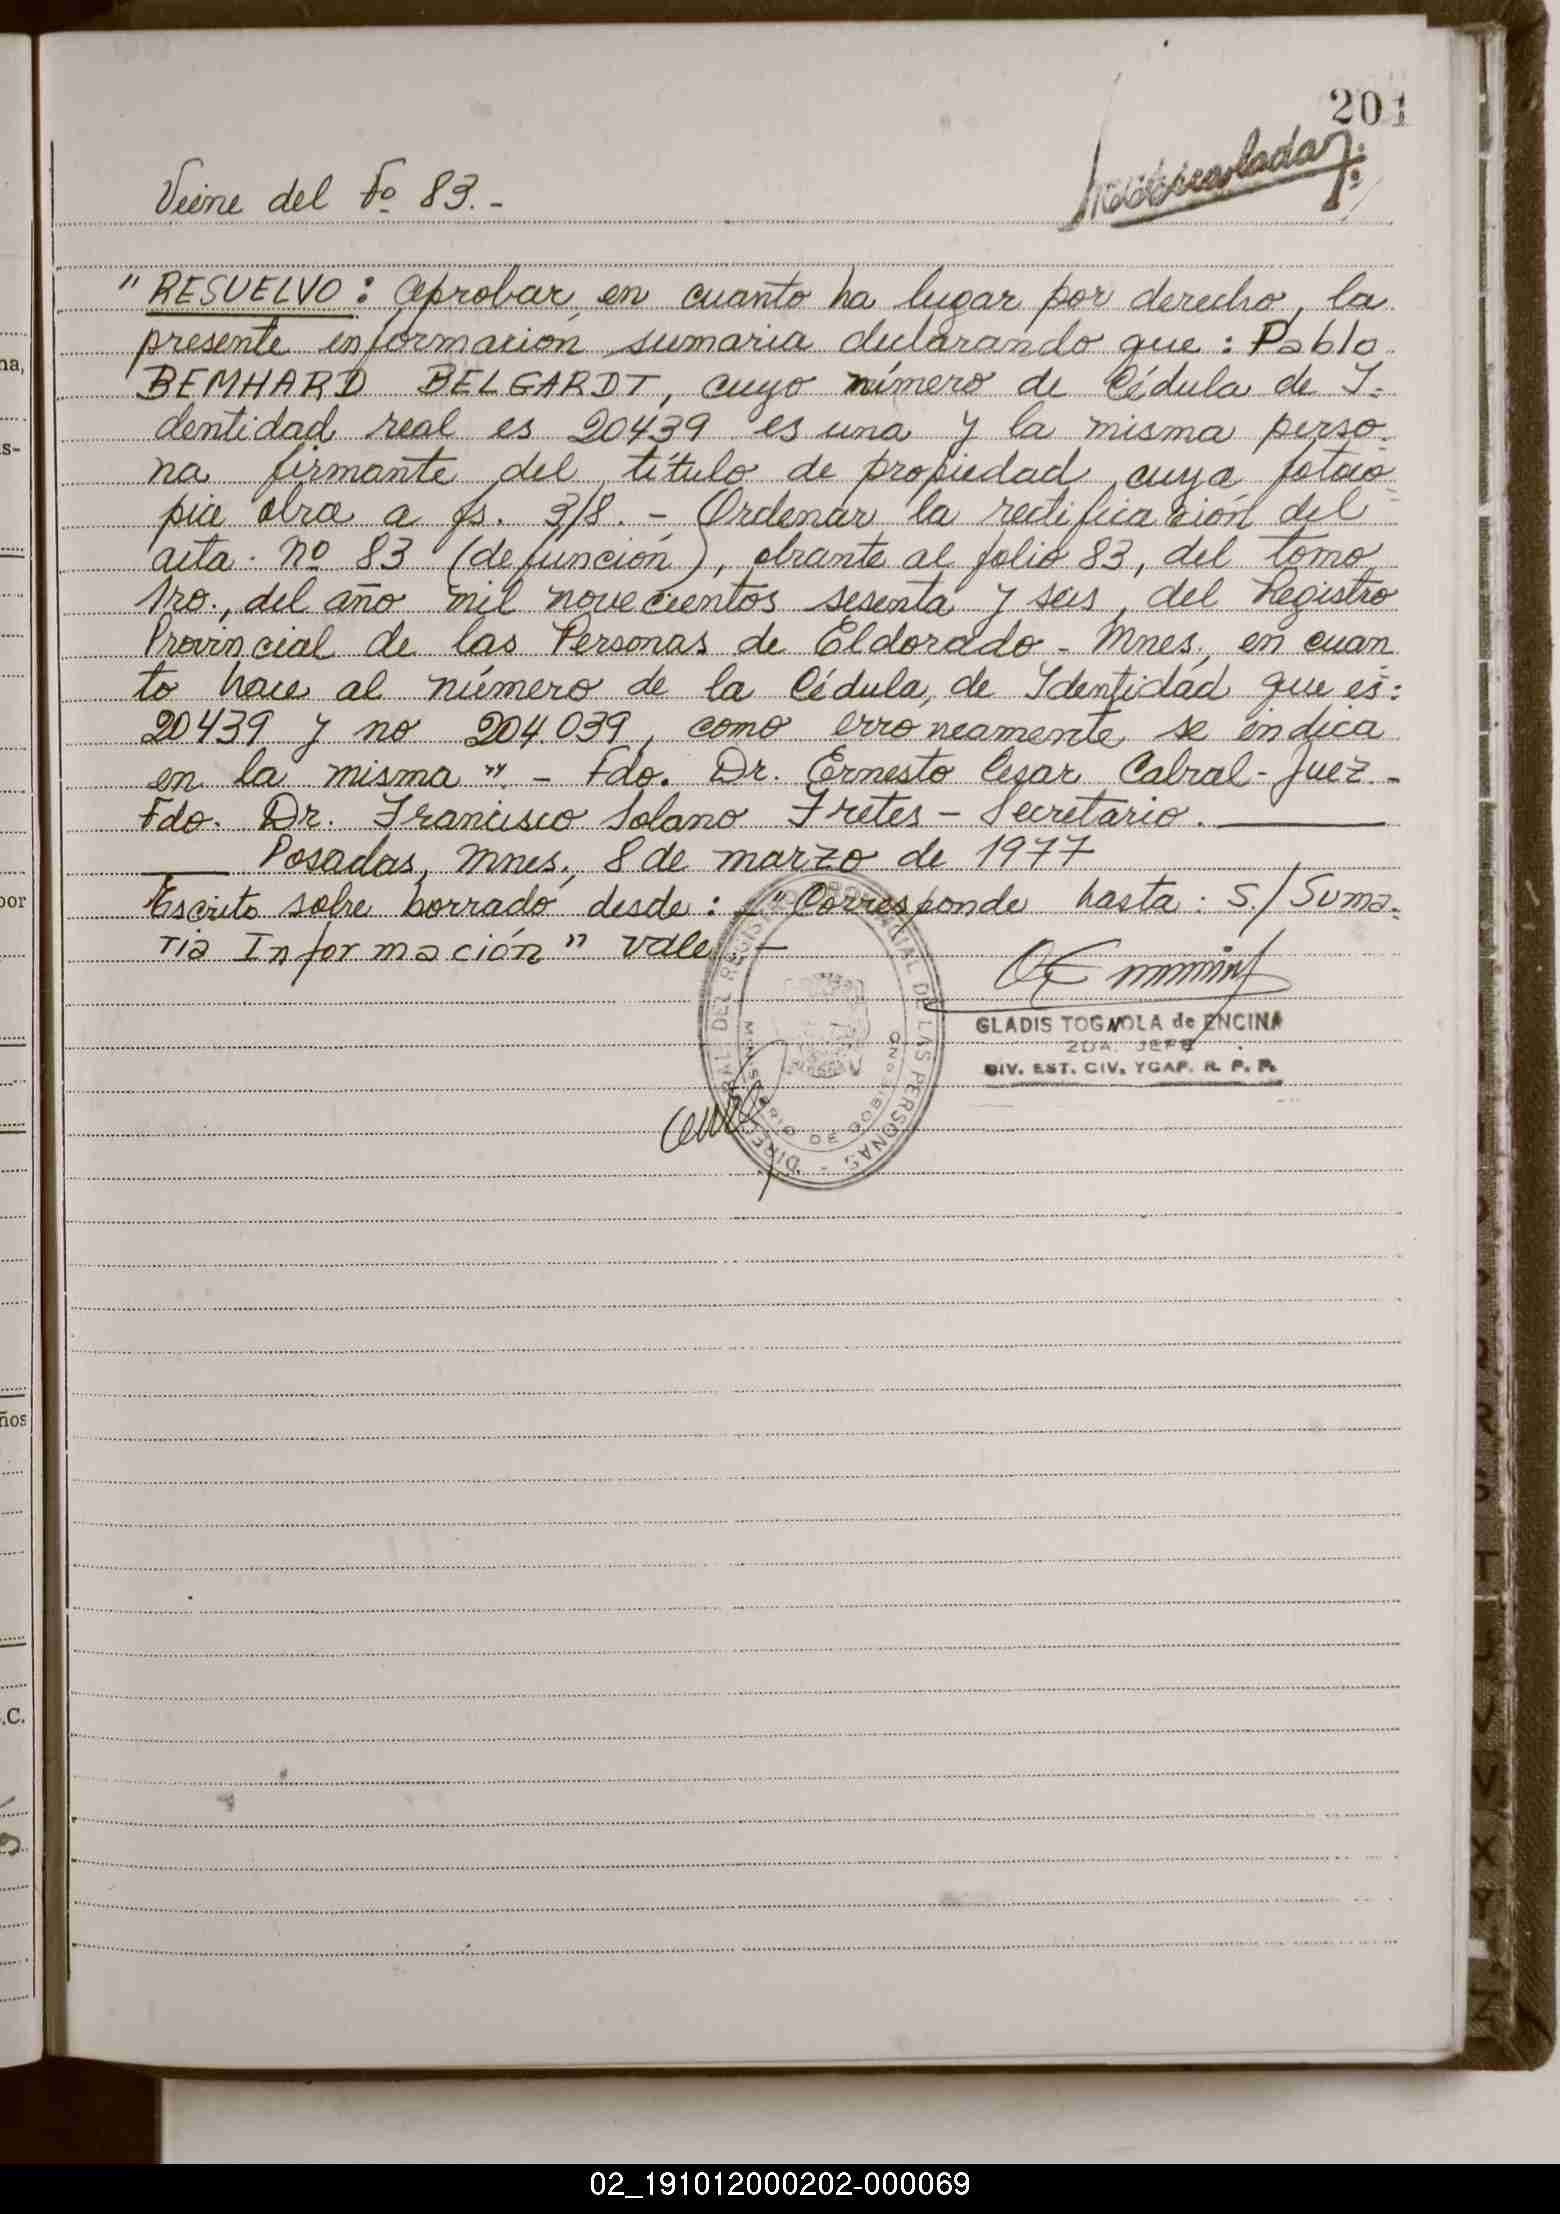 201
Viene del Fº 83.-
" RESUELVO: Aprobar, en cuanto ha lugar por derecho, la
presente información sumaria declarando que: Pablo
BEMHARD BELGARDT, cuyo número de Cédula de I-
dentidad real es 20439 es una y la misma perso-
na firmante del título de propiedad cuya fotoco-
pia obra a fs. 3/8. - Ordenar la rectificación del
acta Nº 83 (defunción), obrante al folio 83, del tomo
1ro., del año mil novecientos sesenta y seis, del Registro
Provincial de las Personas de Eldorado - Mnes., en cuan
to hace al número de la Cédula, de Identidad que es:
20439 y no 204.039, como erroneamente se indica
en la misma". - Fdo. Dr. Ernesto Cesar Cabral - Juez -
Fdo. Dr. Francisco Solano Fretes - Secretario.
Posadas, Mnes., 8 de marzo de 1977
Escrito sobre borrado desde: "Corresponde hasta: S./Suma-
ria Información" vale. -
DIREC GRAL DEL REGISTRO PROVINCIAL DE LAS PERSONAS -
MINISTERIO DE GOBIERNO
GLADIS TOGNOLA de ENCINA
2DA. JEFE
DIV. EST. CIV. YCAP. R. P. P.
na,
s-
por
ños
.C.
R
S
T
U
V
V
X
Y
Z
02_191012000202-000069